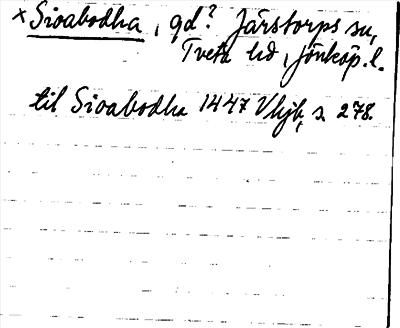 × Sioabodha, gd? Järstorps sn,
Tveta hd, Jönköp. l.
til Sioabodha 1447 Vhjb, s. 278.